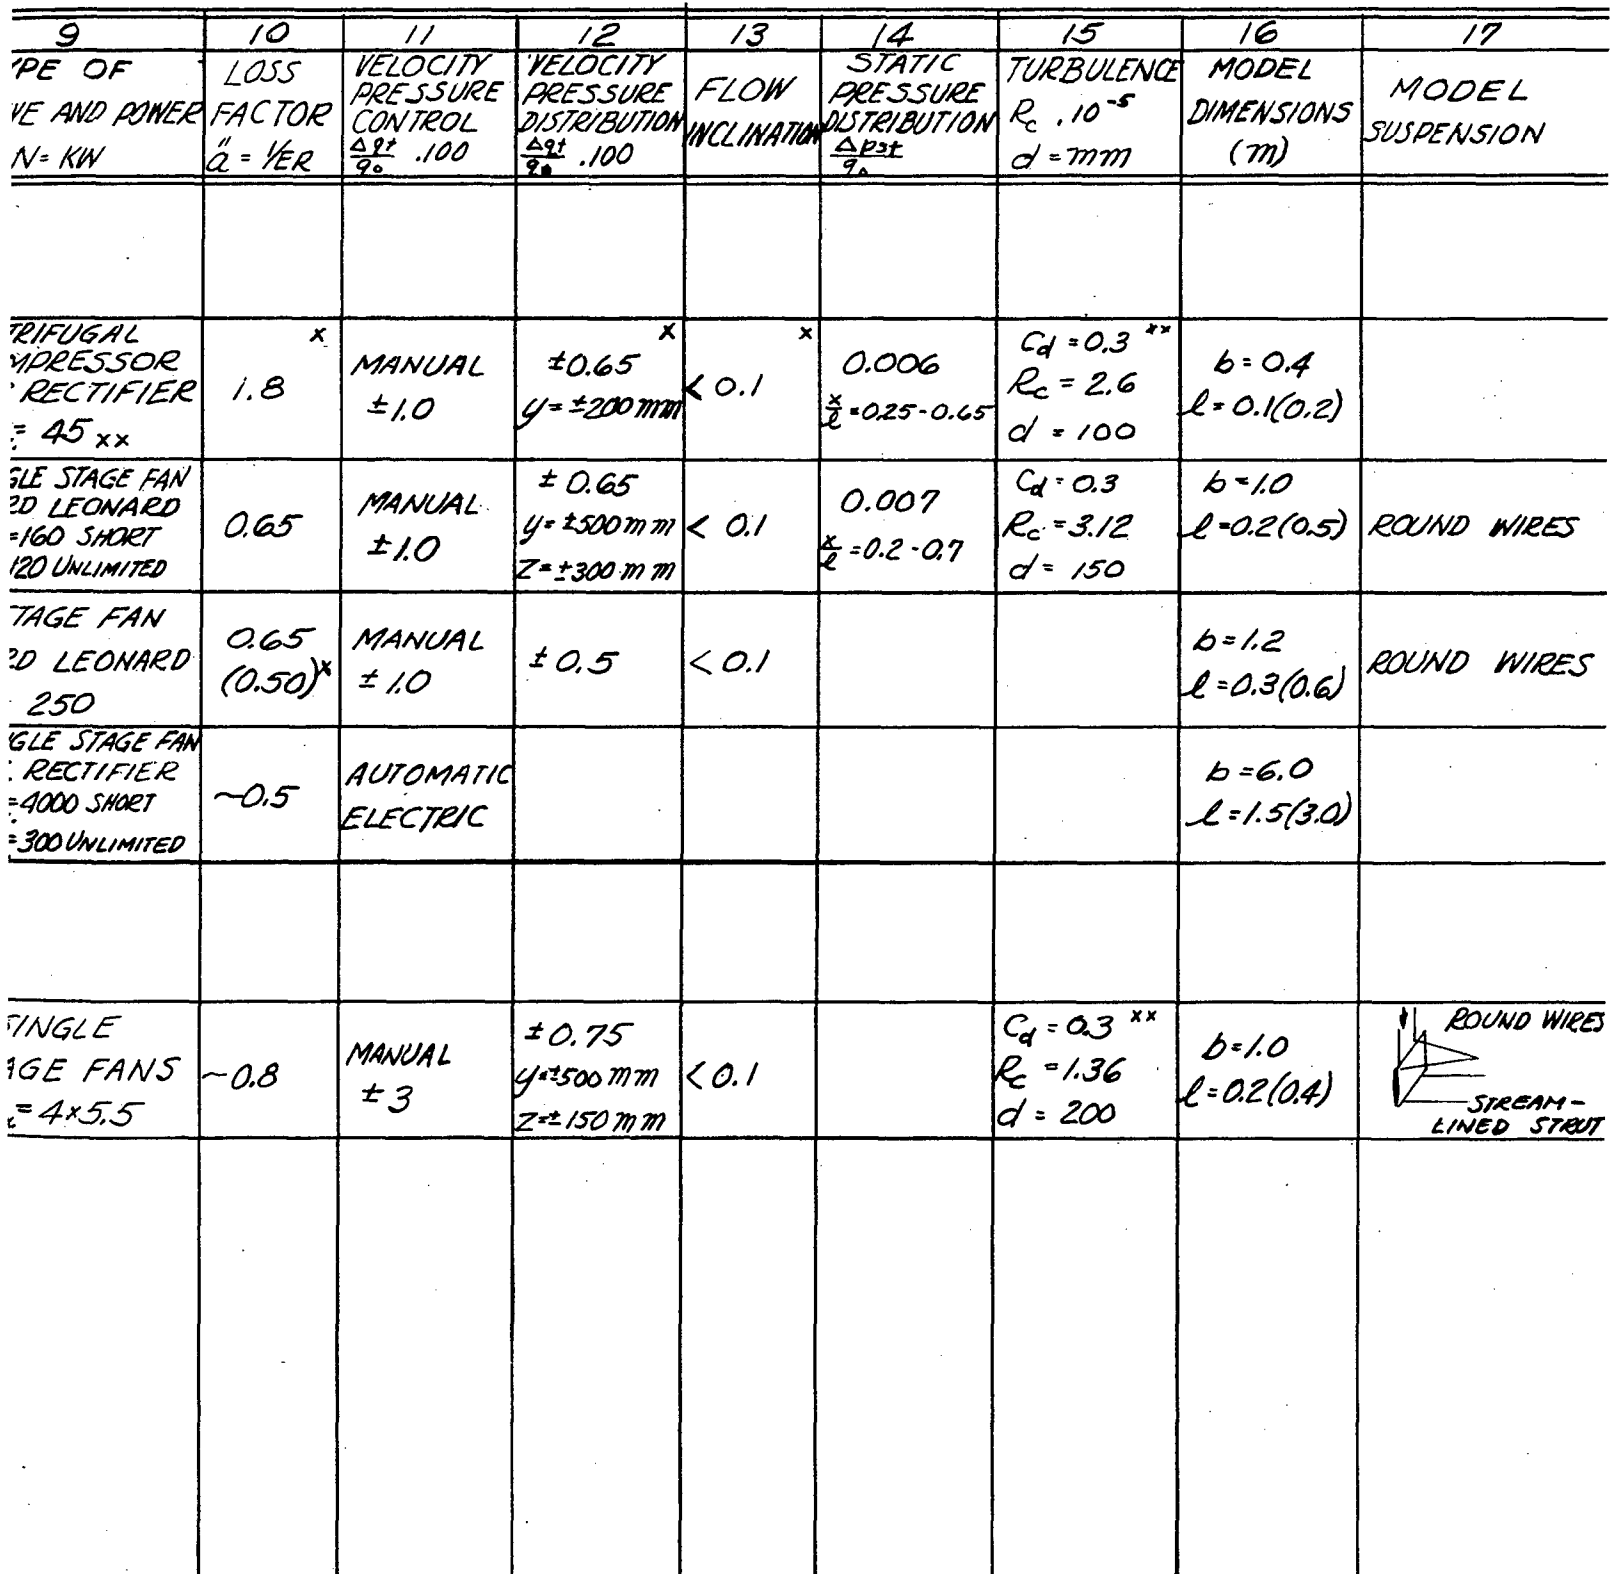 9 10 11 12 13 14 15 16 17
PE OF
VE AND POWER
N = KW
LOSS
FACTOR
ä = 1/ER
VELOCITY
PRESSURE
CONTROL
Δqt/q₀ .100
VELOCITY
PRESSURE
DISTRIBUTION
Δqt/q₀ .100
FLOW
INCLINATION
STATIC
PRESSURE
DISTRIBUTION
Δpst/q₀
TURBULENCE
Rc . 10⁻⁵
d = mm
MODEL
DIMENSIONS
(m)
MODEL
SUSPENSION
TRIFUGAL
MPRESSOR
RECTIFIER
= 45 xx
x
1.8
MANUAL
±1.0
x
±0.65
y = ±200 mm
x
< 0.1
0.006
x/l = 0.25 - 0.65
Cd = 0.3 xx
Rc = 2.6
d = 100
b = 0.4
l = 0.1(0.2)
GLE STAGE FAN
RD LEONARD
=160 SHORT
120 UNLIMITED
0.65
MANUAL
±1.0
± 0.65
y = ±500 mm
z = ±300 mm
< 0.1
0.007
x/l = 0.2 - 0.7
Cd = 0.3
Rc = 3.12
d = 150
b = 1.0
l = 0.2(0.5)
ROUND WIRES
TAGE FAN
RD LEONARD
250
0.65
(0.50)x
MANUAL
± 1.0
± 0.5
< 0.1
b = 1.2
l = 0.3(0.6)
ROUND WIRES
GLE STAGE FAN
RECTIFIER
=4000 SHORT
=300 UNLIMITED
~0.5
AUTOMATIC
ELECTRIC
b = 6.0
l = 1.5(3.0)
SINGLE
AGE FANS
= 4x5.5
~0.8
MANUAL
± 3
± 0.75
y = ±500 mm
z = ± 150 mm
< 0.1
Cd = 0.3 xx
Rc = 1.36
d = 200
b = 1.0
l = 0.2(0.4)
ROUND WIRES
STREAM-
LINED STRUT